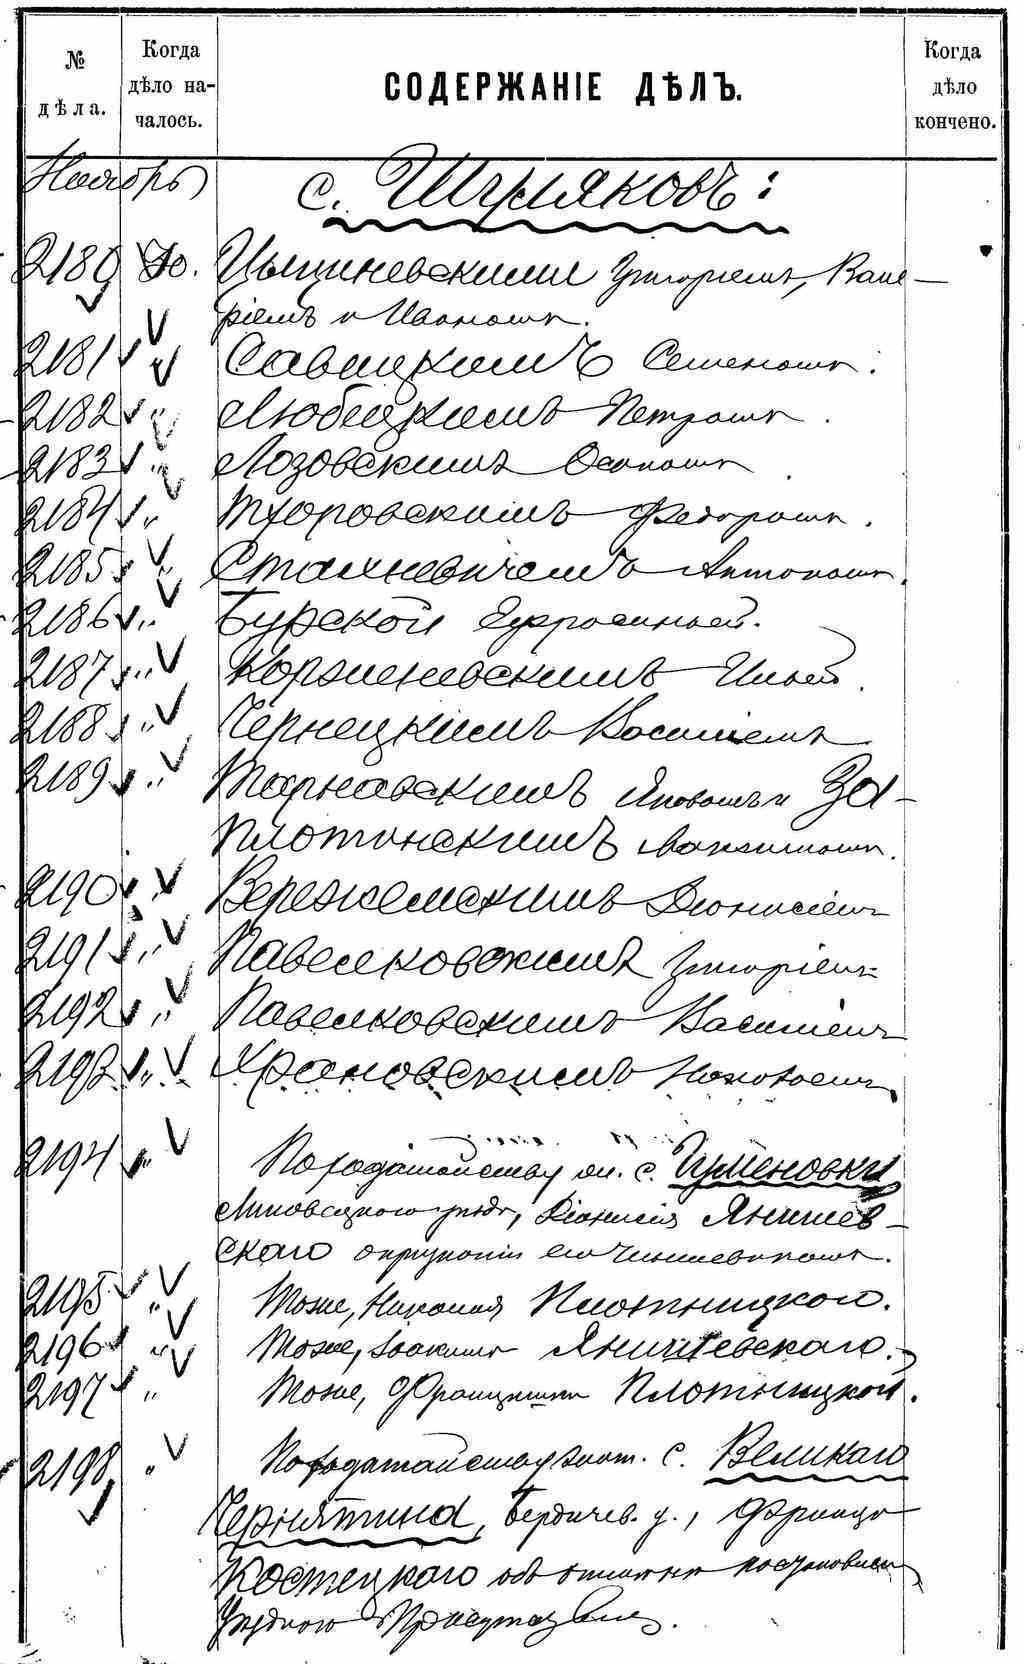 № дѣла.
Когда дѣло началось.
СОДЕРЖАНІЕ ДѢЛЪ.
Когда дѣло кончено.
Ноябрь
с. Шуляковъ:
2180 30. Цышневскими Григоріемъ, Вале-
ріемъ и Иваномъ.
2181 " Савицкимъ Семеномъ.
2182 " Любецкимъ Петромъ.
2183 " Лозовскимъ Осипомъ
2184 " Тхоровскимъ Федоромъ.
2185 " Стахневичемъ Антономъ.
2186 " Бурской Ефросиньей.
2187 " Корженевскимъ Ильей.
2188 " Чернецкимъ Василіемъ
2189 " Тарнавскимъ Яковомъ и За-
плотинскимъ Максимомъ.
2190 " Вережемскимъ Діонисіемъ
2191 " Павелковскимъ Григоріемъ
2192 " Павелковскимъ Василіемъ
2193 " Храновскимъ
2194 " По ходатайству с. Гуменовки
Липовецкого уѣзда, Діонисія Янишев-
скаго его чиншевикомъ.
2195 " Тоже, Николая Плотницкого.
2196 " Тоже, Іоакима Янишевскаго.
2197 " Тоже, Францишки Плотницкой.
2198 " По ходатайству с. Великаго
Чернятина, Бердичев. у., Франца
Костецкаго объ отмѣнѣ
Уѣзднаго Присутствія.